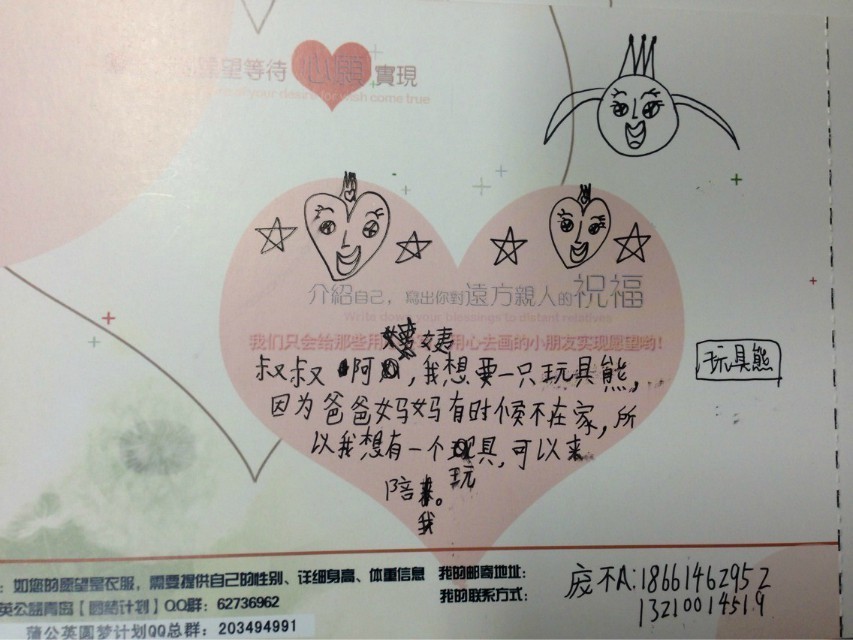 願望等待 心願 實現
your desire for wish come true
介紹自己，寫出你對遠方親人的祝福
Write down your blessings to distant relatives
我们只会给那些用心去画的小朋友实现愿望哟！
姨
叔叔啊，我想要一只玩具熊，
因为爸爸妈妈有时候不在家，所
以我想有一个玩具，可以来
陪我。
玩具熊
：如您的愿望是衣服，需要提供自己的性别、详细身高、体重信息
英公益青岛【唇腭计划】QQ群：62736962
蒲公英圆梦计划QQ总群：203494991
我的邮寄地址：
我的联系方式：
18661462952
13210014519